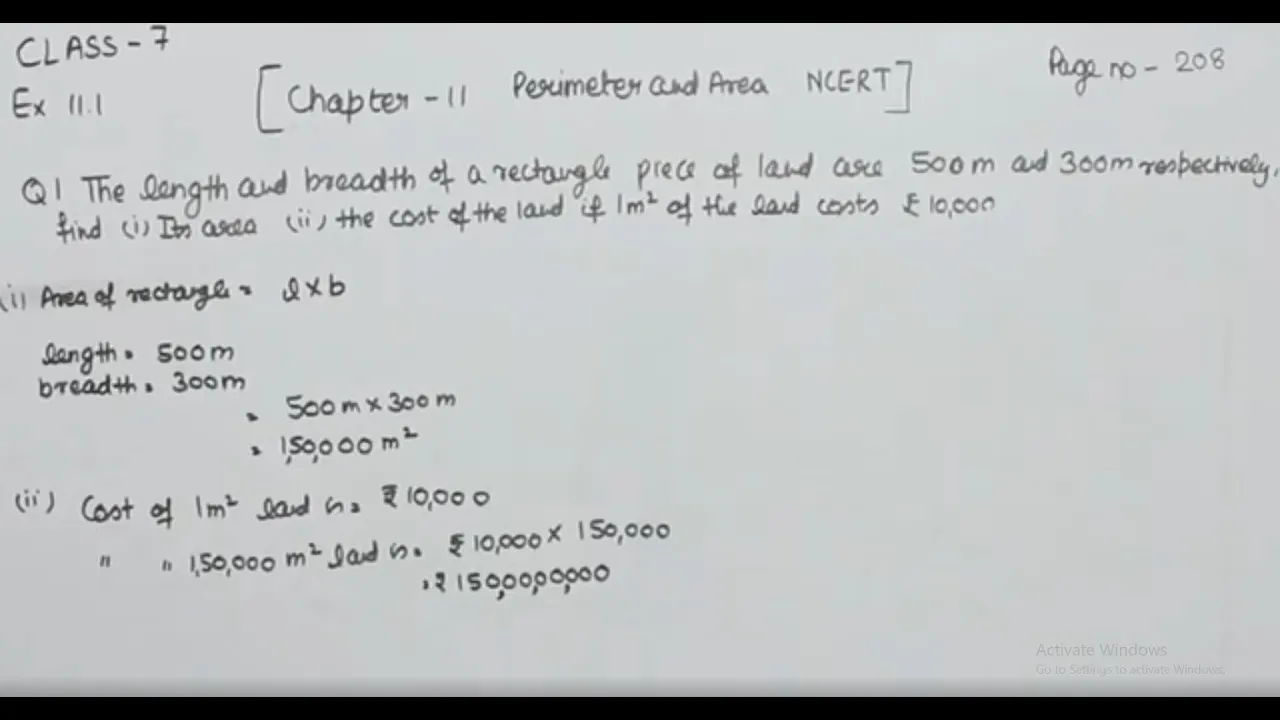 CLASS - 7
Ex 11.1
[Chapter - 11 Perimeter and Area NCERT]
Page no - 208
Q1 The length and breadth of a rectangle piece of land are 500m and 300m respectively,
find (i) Its area (ii) the cost of the land if 1m² of the land costs ₹10,000
(i) Area of rectangle = l×b
length = 500m
breadth = 300m
= 500m × 300m
= 1,50,000 m²
(ii) Cost of 1m² land is = ₹10,000
" " 1,50,000 m² land is = ₹10,000 × 150,000
= ₹150,00,00,000
Activate Windows
Go to Settings to activate Windows.